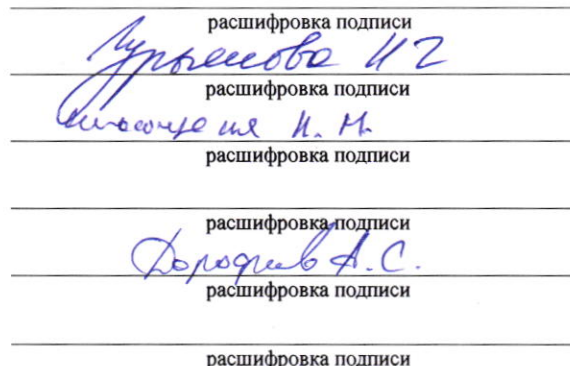 расшифровка подписи
Гурьянова И Г
расшифровка подписи
Н. М.
расшифровка подписи
расшифровка подписи
Дорофеев А. С.
расшифровка подписи
расшифровка подписи